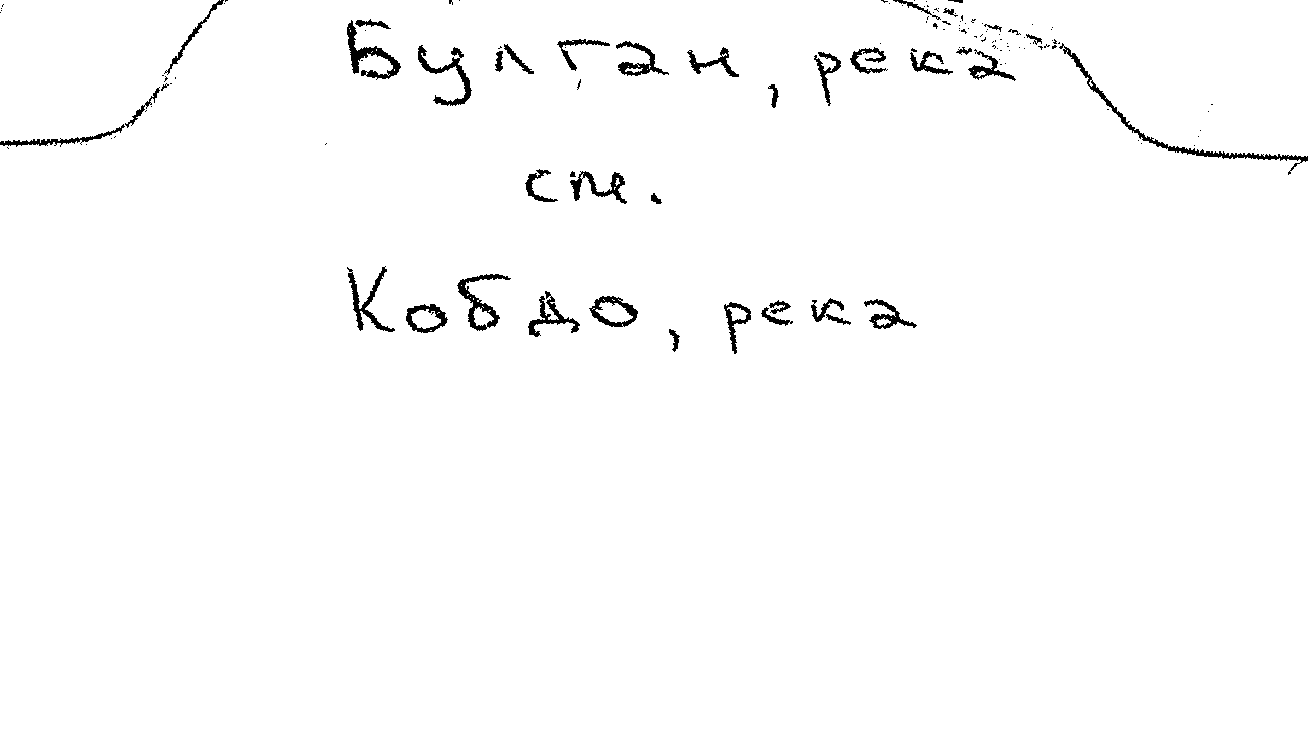 Булган, река
см.
Кобдо, река